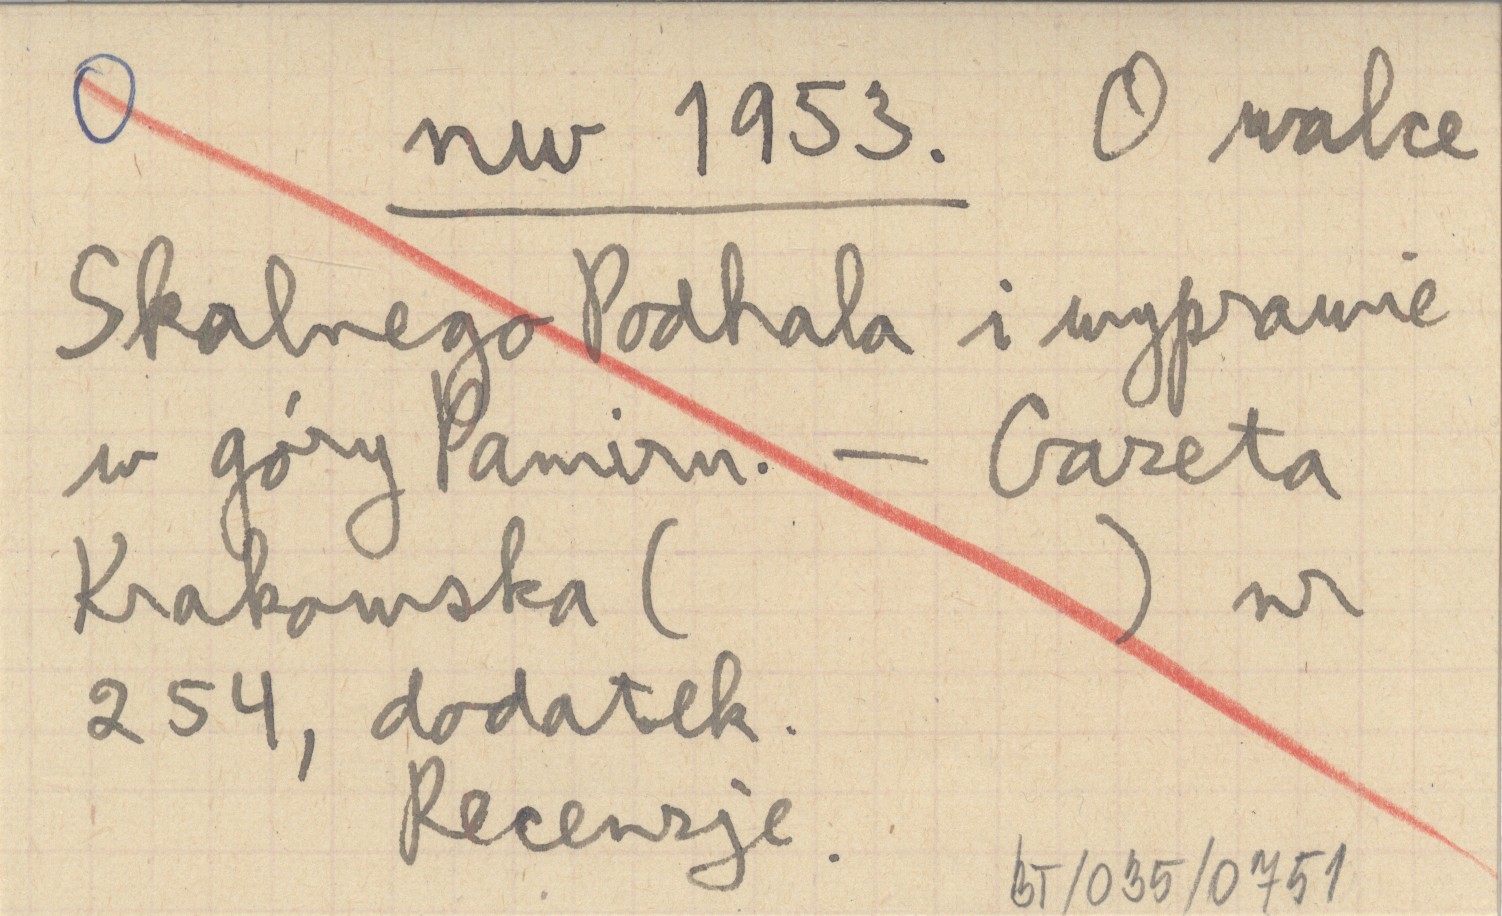 O nw 1953. O walce
Skalnego Podhala i wyprawie
w góry Pamiru. — Gazeta
Krakowska ( ) nr
254, dodatek.
Recenzje.
BT/035/0751